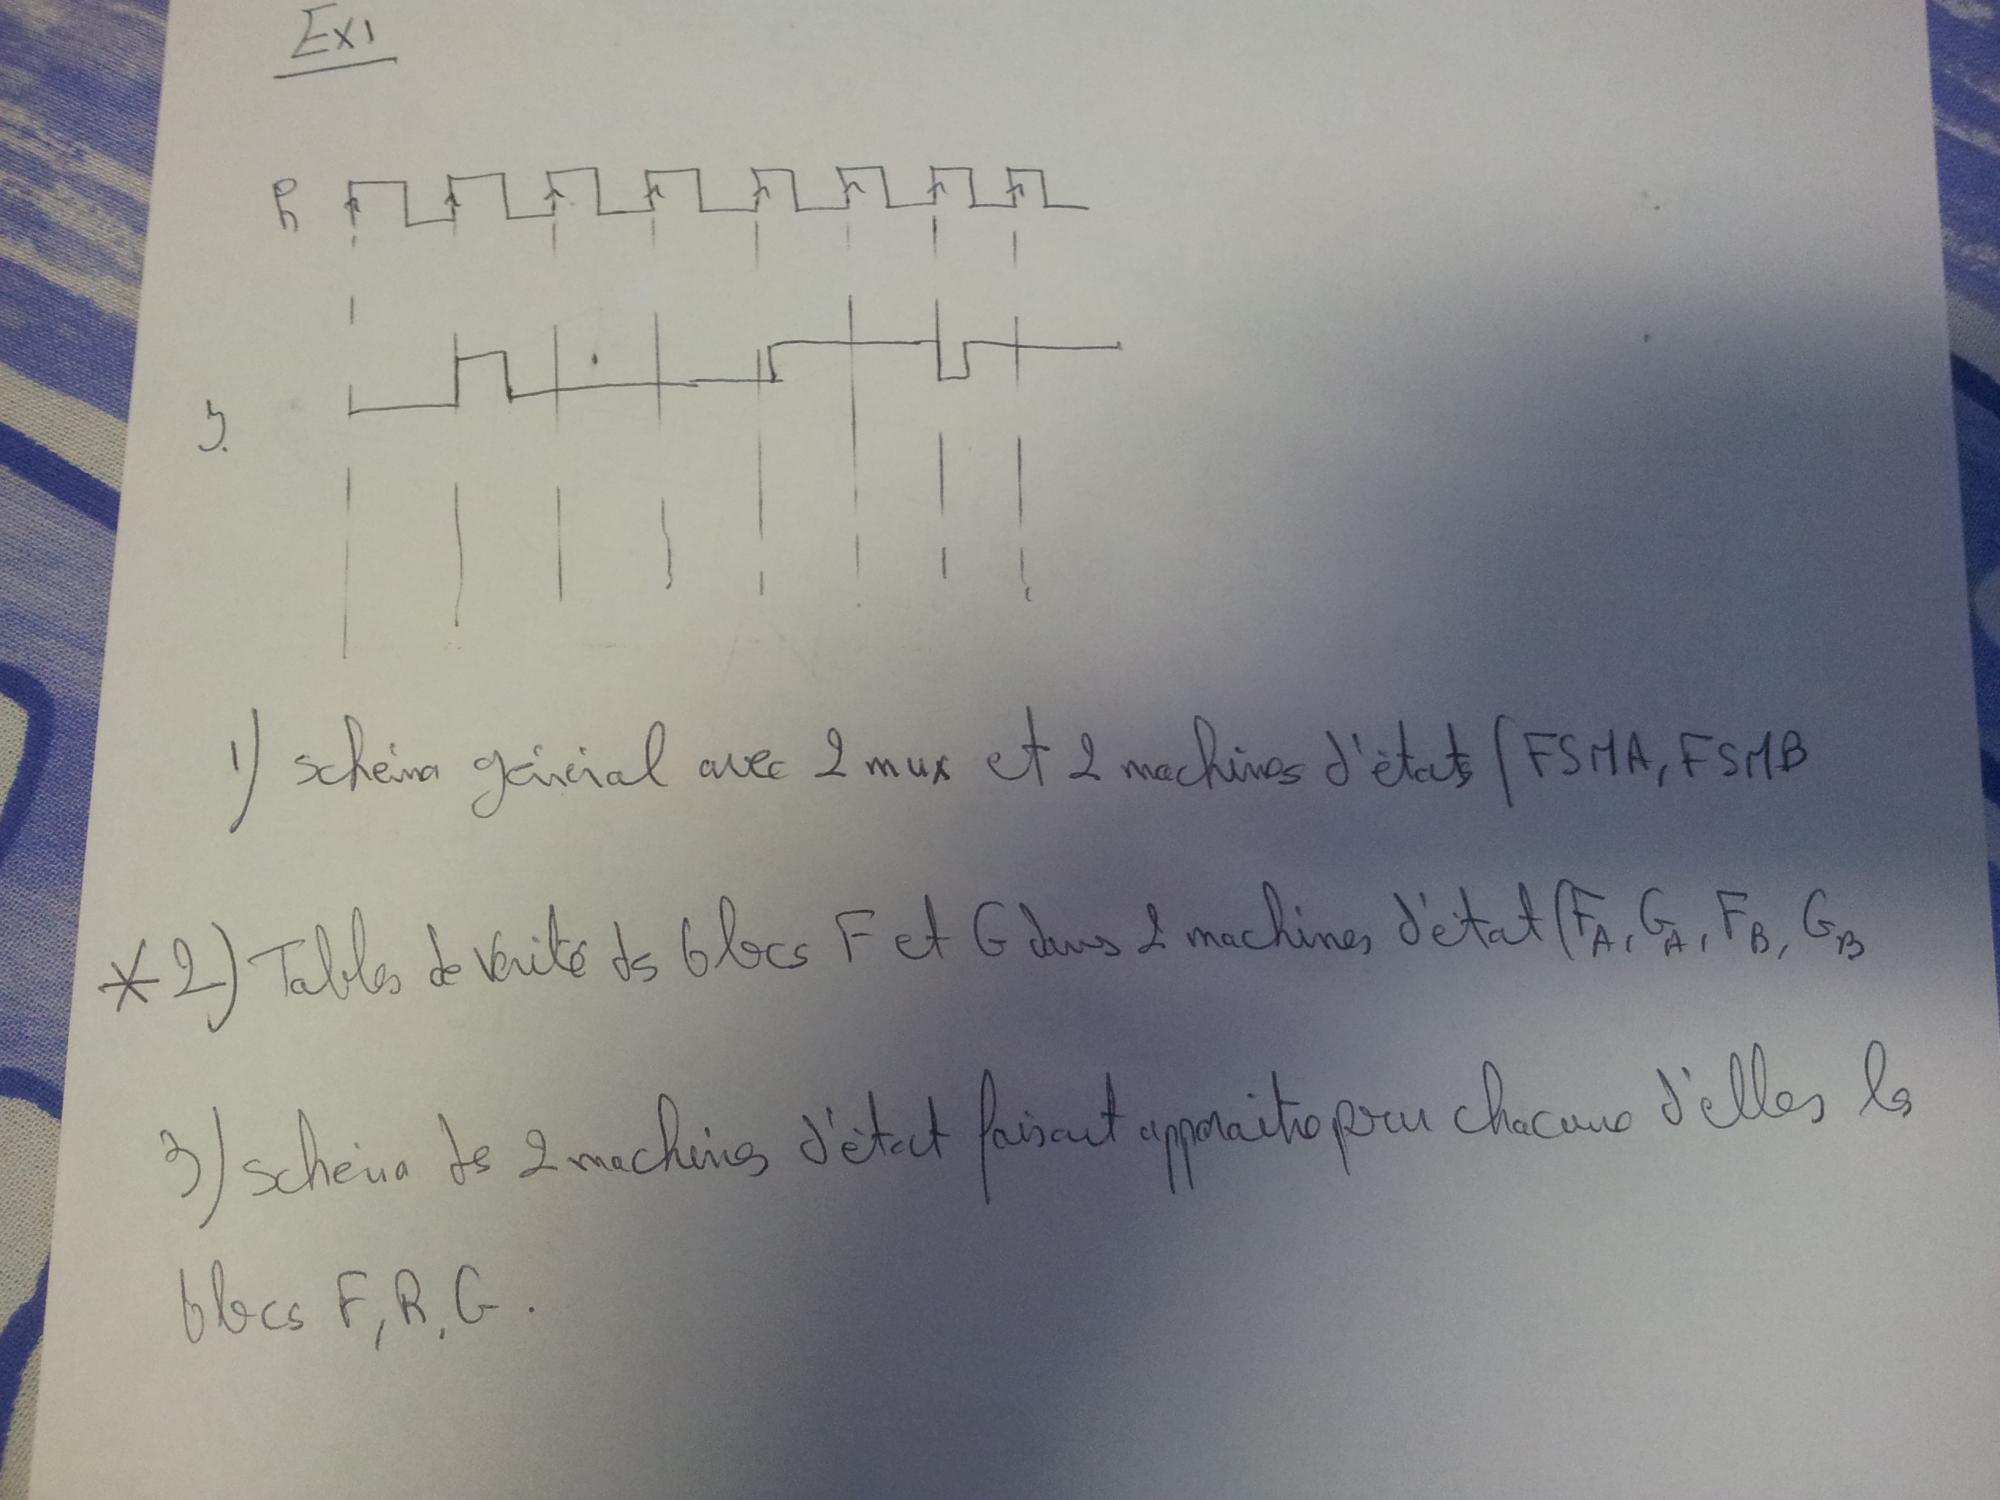 Ex1
h
J.
1) schéma général avec 2 mux et 2 machines d'états (FSMA, FSMB
*2) Tables de vérité ds blocs F et G dans 2 machines d'état (FA, GA, FB, GB
3) schéma ds 2 machines d'état faisant apparaitre pour chacune d'elles ls
blocs F, R, G.